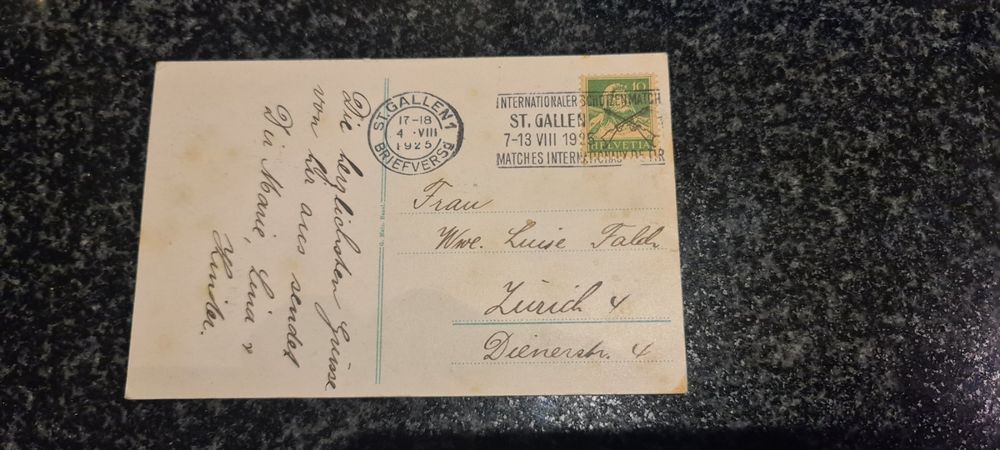 Die herzlichsten Grüsse
von hir aus sendet
Dir Marie, Lina &
ST. GALLEN 1
17-18
4 · VIII
1925
BRIEFVERSd
INTERNATIONALER SCHÜTZENMATCH
ST. GALLEN
7-13 VIII 1925
MATCHES INTERNATIONAUX DE TIR
10
HELVETIA
Frau
Wwe. Luise
Zürich 4
Dienerstr. 4